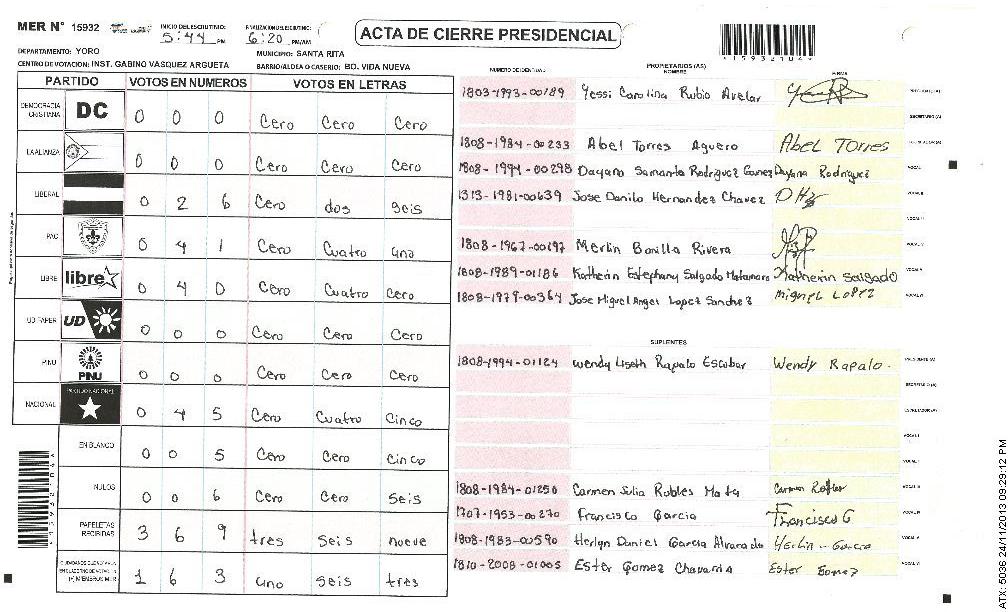 MER N° 15932
INICIO DEL ESCRUTINIO: 5:44 PM
FINALIZACION DEL ESCRUTINIO: 6:20 PM/AM
ACTA DE CIERRE PRESIDENCIAL
15932104
DEPARTAMENTO: YORO
MUNICIPIO: SANTA RITA
CENTRO DE VOTACION: INST. GABINO VASQUEZ ARGUETA
BARRIO/ALDEA O CASERIO: BO. VIDA NUEVA
PARTIDO VOTOS EN NUMEROS VOTOS EN LETRAS
DEMOCRACIA CRISTIANA DC 0 0 0 Cero Cero Cero
LA ALIANZA 0 0 0 Cero Cero Cero
LIBERAL 0 2 6 Cero dos seis
PAC 0 4 1 Cero Cuatro uno
LIBRE libre 0 4 0 Cero Cuatro Cero
UD FAPER UD 0 0 0 Cero Cero Cero
PINU PINU 0 0 0 Cero Cero Cero
NACIONAL PARTIDO NACIONAL 0 4 5 Cero Cuatro Cinco
EN BLANCO 0 0 5 Cero Cero Cinco
NULOS 0 0 6 Cero Cero Seis
PAPELETAS RECIBIDAS 3 6 9 tres seis nueve
(+) MIEMBROS MER 1 6 3 uno seis tres
NUMERO DE IDENTIDAD PROPIETARIOS (AS) NOMBRE FIRMA
1803-1993-00189 Yessi Carolina Rubio Avelar PRESIDENTE (A)
SECRETARIO (A)
1808-1984-00233 Abel Torres Aguero Abel Torres ESCRUTADOR (A)
1808-1994-00298 Dayana Samanta Rodriguez Gomez Dayana Rodriguez VOCAL I
1313-1981-00639 Jose Danilo Hernandez Chavez VOCAL II
VOCAL III
1808-1967-00197 Merlin Bonilla Rivera VOCAL IV
1808-1989-01186 Katherin Estephany Salgado Matamoro Katherin Salgado VOCAL V
1808-1979-00364 Jose Miguel Angel Lopez Sanchez Miguel Lopez VOCAL VI
SUPLENTES
1808-1994-01124 Wendy Liseth Rapalo Escobar Wendy Rapalo. PRESIDENTE (A)
SECRETARIO (A)
ESCRUTADOR (A)
VOCAL I
VOCAL II
1808-1984-01250 Carmen Julia Robles Mata Carmen Robles VOCAL III
1707-1953-00270 Francisco Garcia Francisco G VOCAL IV
1808-1983-00590 Herlyn Daniel Garcia Alvarado Herlin Garcia VOCAL V
1810-2008-01005 Ester Gomez Chavarria Ester Gomez VOCAL VI
ATX: 5036 24/11/2013 09:29:12 PM